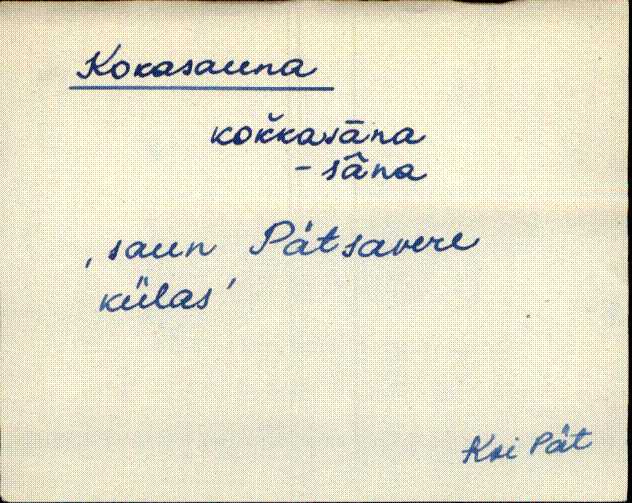 Kokasauna
kok̆kasāna
- sâna
‚ saun Pätsavere
külas’
Ksi Pät